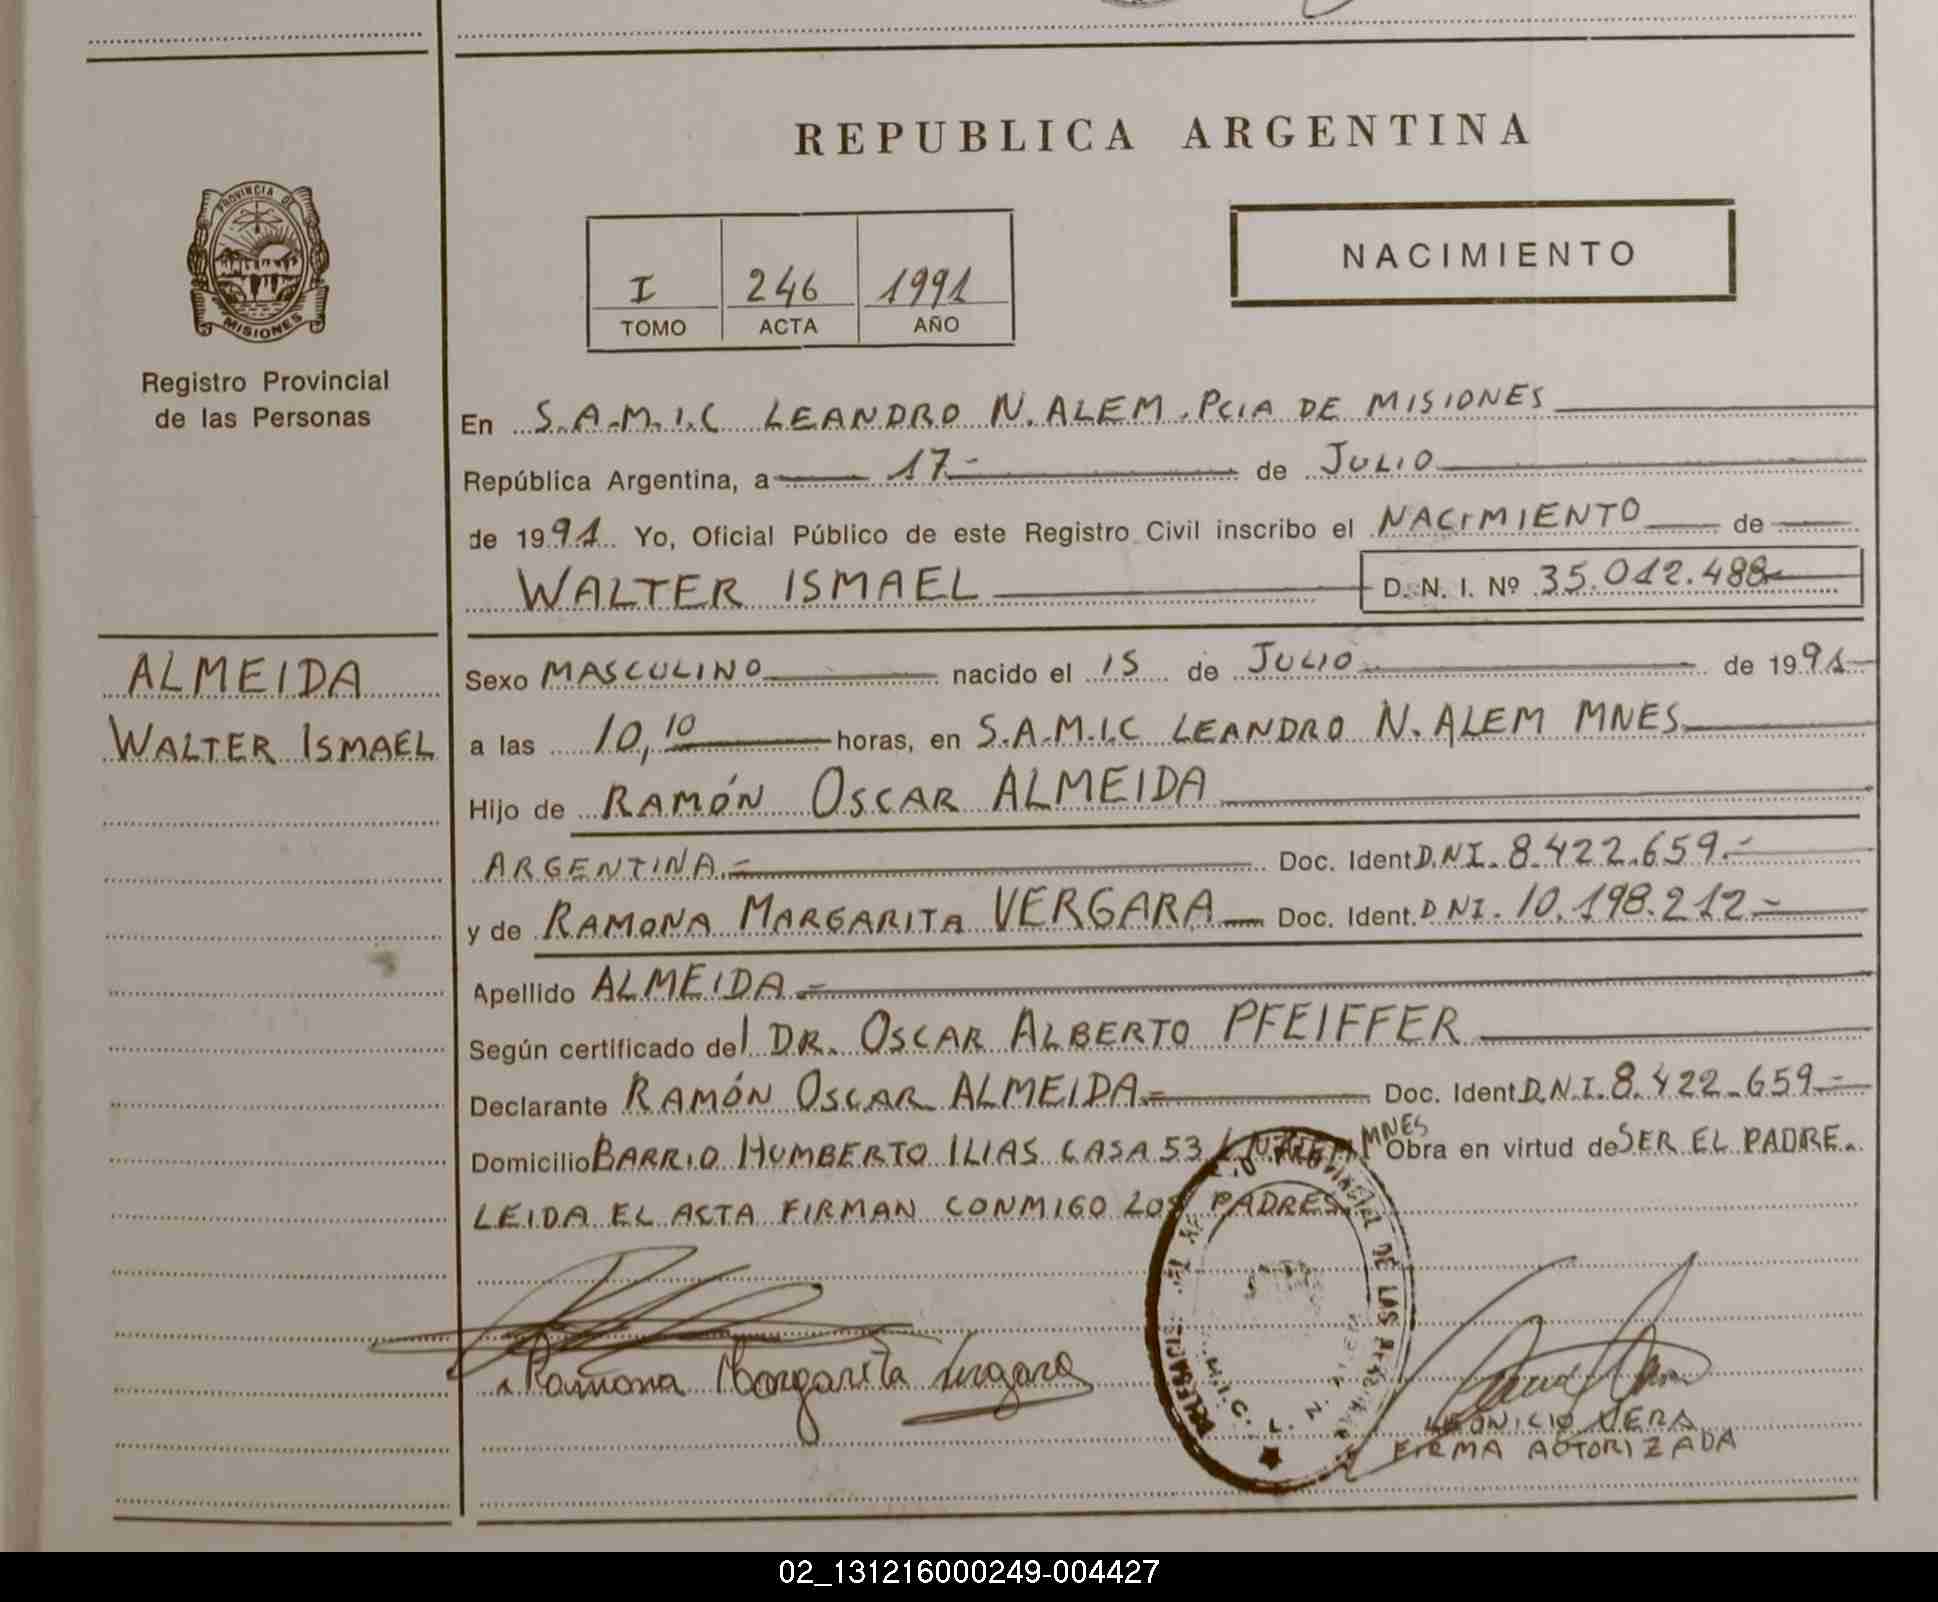 REPUBLICA ARGENTINA
PROVINCIA DE MISIONES
Registro Provincial
de las Personas
I 246 1991
TOMO ACTA AÑO
NACIMIENTO
En S.A.M.I.C LEANDRO N. ALEM. PCIA DE MISIONES
República Argentina, a 17.- de JULIO
de 1991. Yo, Oficial Público de este Registro Civil inscribo el NACIMIENTO de
WALTER ISMAEL D. N. I. Nº 35.012.488
ALMEIDA
WALTER ISMAEL
Sexo MASCULINO nacido el 15 de JULIO de 1991
a las 10,10 horas, en S.A.M.I.C LEANDRO N. ALEM MNES
Hijo de RAMÓN OSCAR ALMEIDA
ARGENTINA.= Doc. Ident D.N.I. 8.422.659.-
y de RAMONA MARGARITA VERGARA Doc. Ident. DNI. 10.198.212.-
Apellido ALMEIDA.=
Según certificado del DR. OSCAR ALBERTO PFEIFFER
Declarante RAMÓN OSCAR ALMEIDA.= Doc. Ident D.N.I. 8.422.659.-
Domicilio BARRIO HUMBERTO ILIAS CASA 53 L.N.ALEM MNES Obra en virtud de SER EL PADRE.
LEIDA EL ACTA FIRMAN CONMIGO LOS PADRES.
Ramona Margarita Vergara
DE LAS
LEONICIO VERA
FIRMA AUTORIZADA
02_131216000249-004427